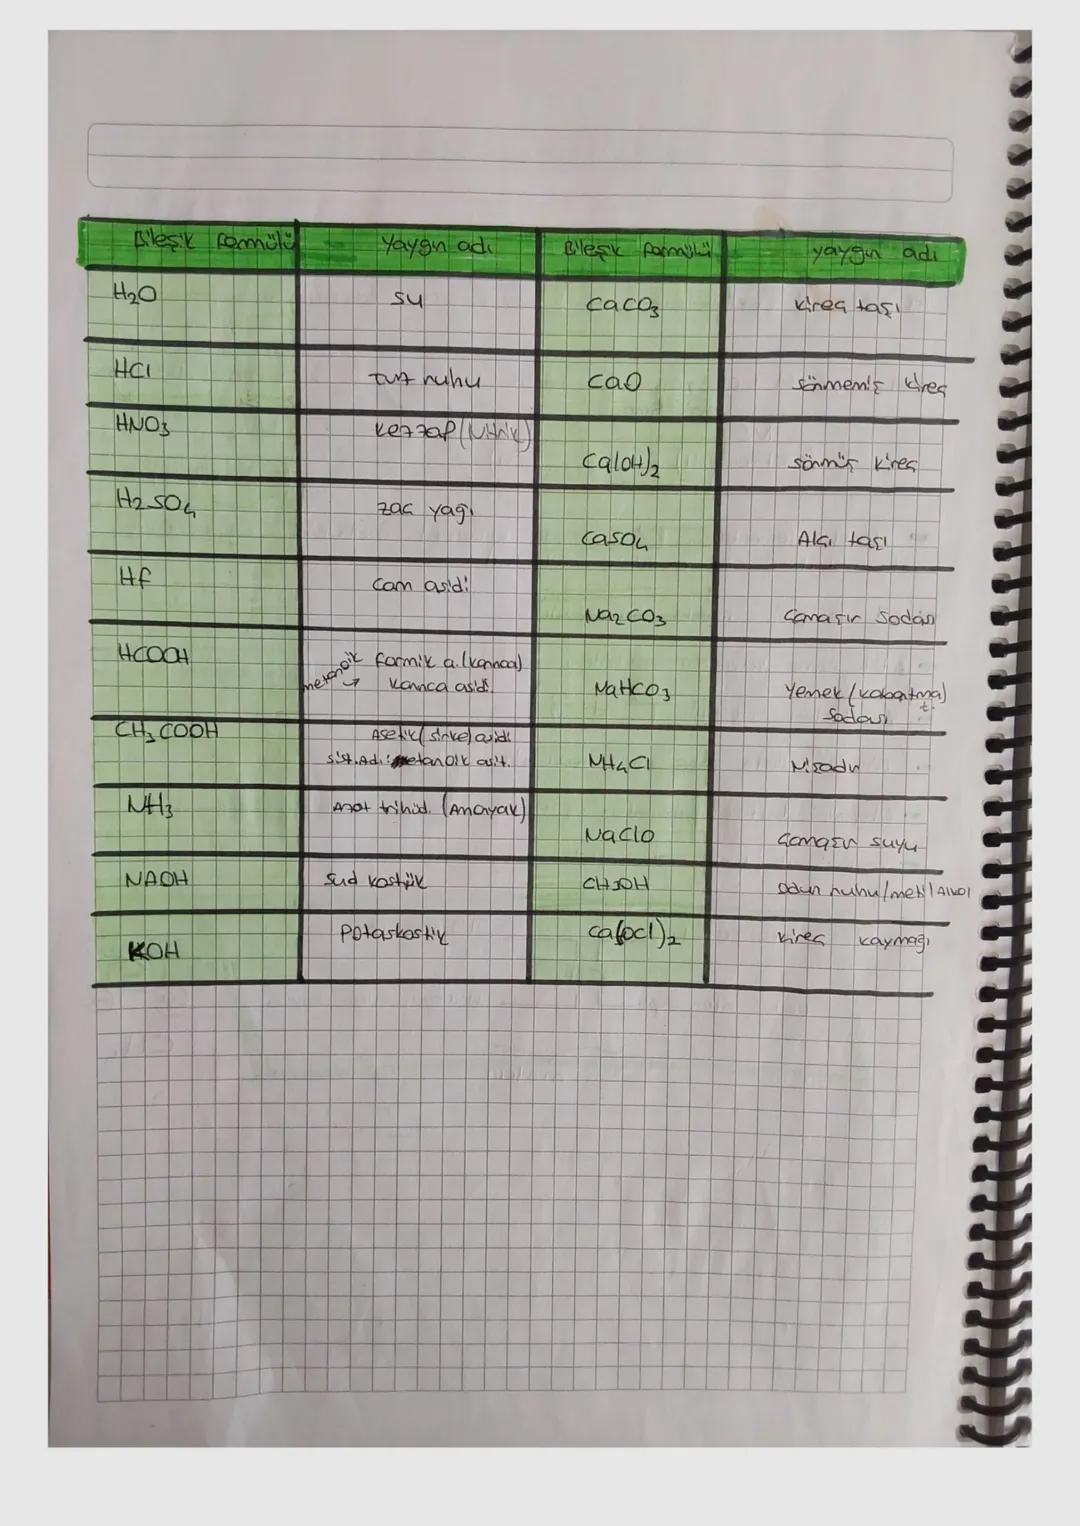 Bileşik formülü Yaygın adı Bileşik formülü yaygın adı
H2O su CaCO3 kireç taşı
HCl Tuz ruhu CaO sönmemiş kireç
HNO3 Kezzap (Nitrik) Ca(OH)2 sönmüş kireç
H2SO4 zaç yağı CaSO4 Alçı taşı
Hf Cam asidi Na2CO3 Çamaşır Sodası
HCOOH metanoik → formik a. (karınca) NaHCO3 Yemek (kabartma) t.
karınca asidi. Sodası
CH3COOH Asetik (sirke) asidi NH4Cl Nişadır
sist.Adı: metanoik asit.
NH3 Azot trihid. (Amonyak) NaClO Çamaşır suyu
NAOH Sud kostik CH3OH odun ruhu/metil Alkol
KOH Potaskostik Ca(OCl)2 kireç kaymağı